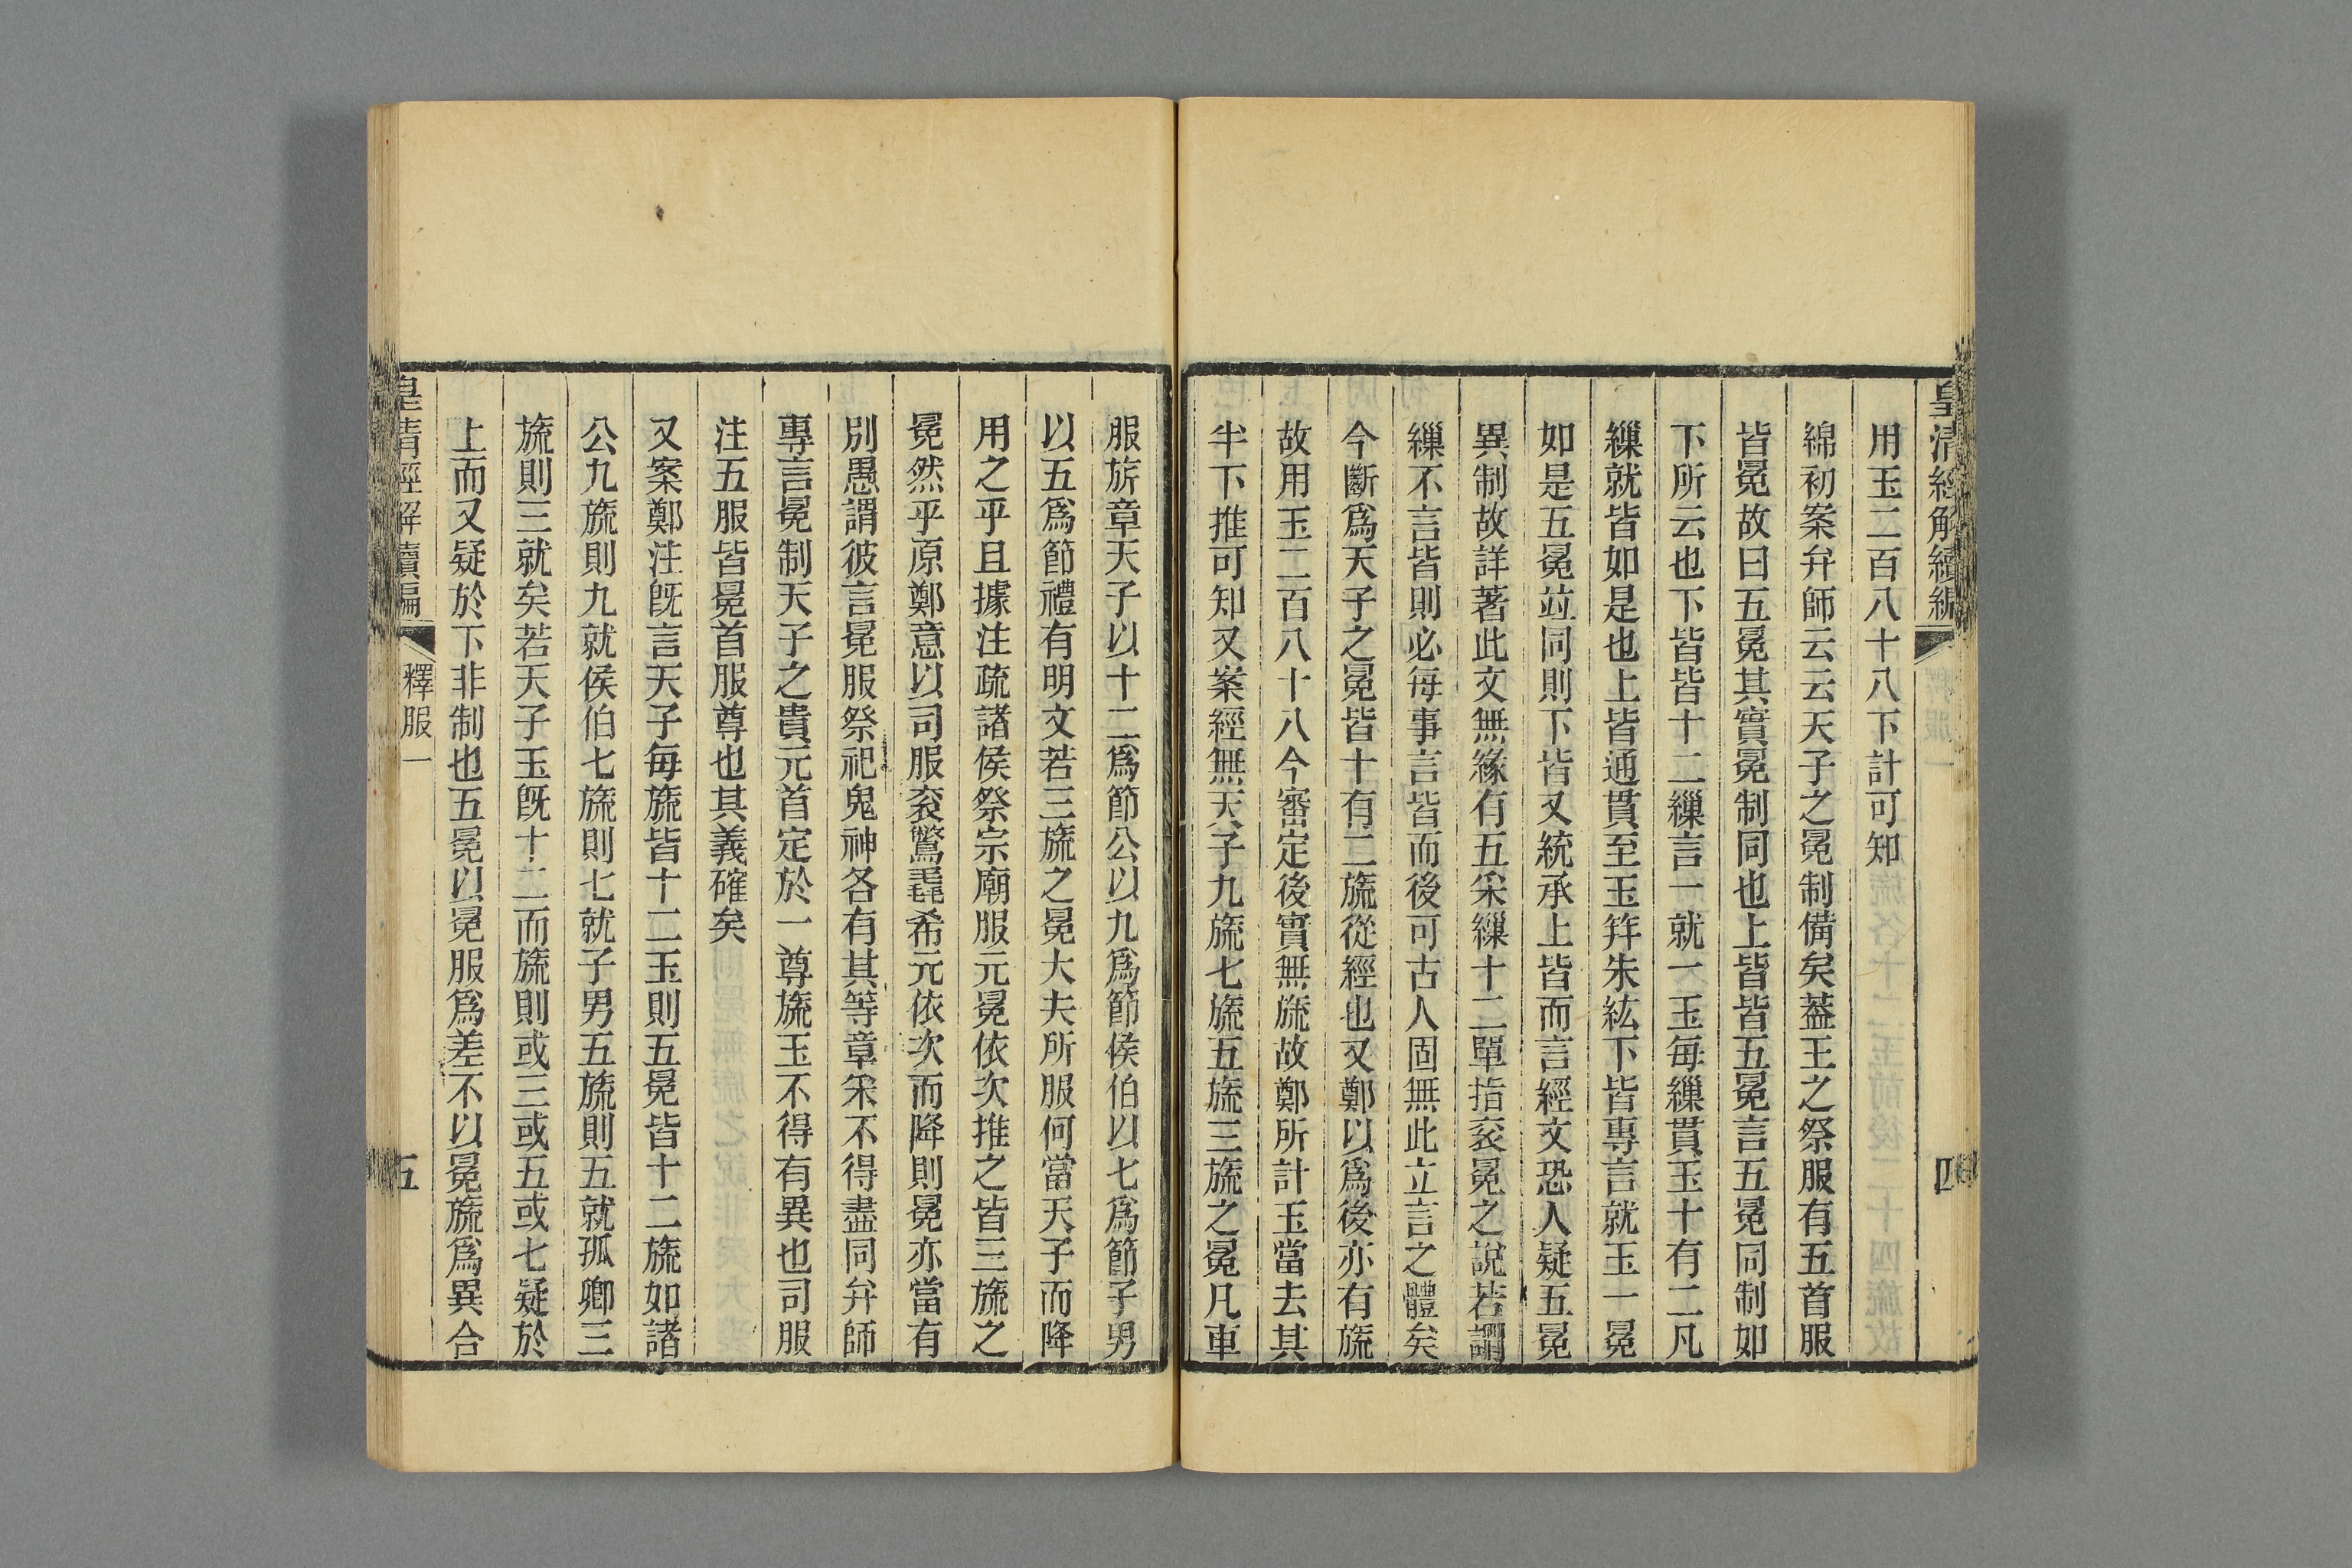 皇清經解續編
四
用玉二百八十八下計可知
綿初案弁師云云天子之冕制備矣葢王之祭服有五首服
皆冕故曰五冕其實冕制同也上皆皆五冕言五冕同制如
下所云也下皆皆十二繅言一就一玉每繅貫玉十有二凡
繅就皆如是也上皆通貫至玉笄朱紘下皆專言就玉一冕
如是五冕竝同則下皆又統承上皆而言經文恐人疑五冕
異制故詳著此文無緣有五采繅十二單指袞冕之說若謂
繅不言皆則必每事言皆而後可古人固無此立言之體矣
今斷爲天子之冕皆十有二旒從經也又鄭以爲後亦有旒
故用玉二百八十八今審定後實無旒故鄭所計玉當去其
半下推可知又案經無天子九旒七旒五旒三旒之冕凡車
服旂章天子以十二爲節公以九爲節侯伯以七爲節子男
以五爲節禮有明文若三旒之冕大夫所服何當天子而降
用之乎且據注疏諸侯祭宗廟服元冕依次推之皆三旒之
冕然乎原鄭意以司服袞鷩毳希元依次而降則冕亦當有
別愚謂彼言冕服祭祀鬼神各有其等章采不得盡同弁師
專言冕制天子之貴元首定於一尊旒玉不得有異也司服
注五服皆冕首服尊也其義確矣
又案鄭注旣言天子每旒皆十二玉則五冕皆十二旒如諸
公九旒則九就侯伯七旒則七就子男五旒則五就孤卿三
旒則三就矣若天子玉旣十二而旒則或三或五或七疑於
上而又疑於下非制也五冕以冕服爲差不以冕旒爲異合
皇清經解續編
釋服一
五